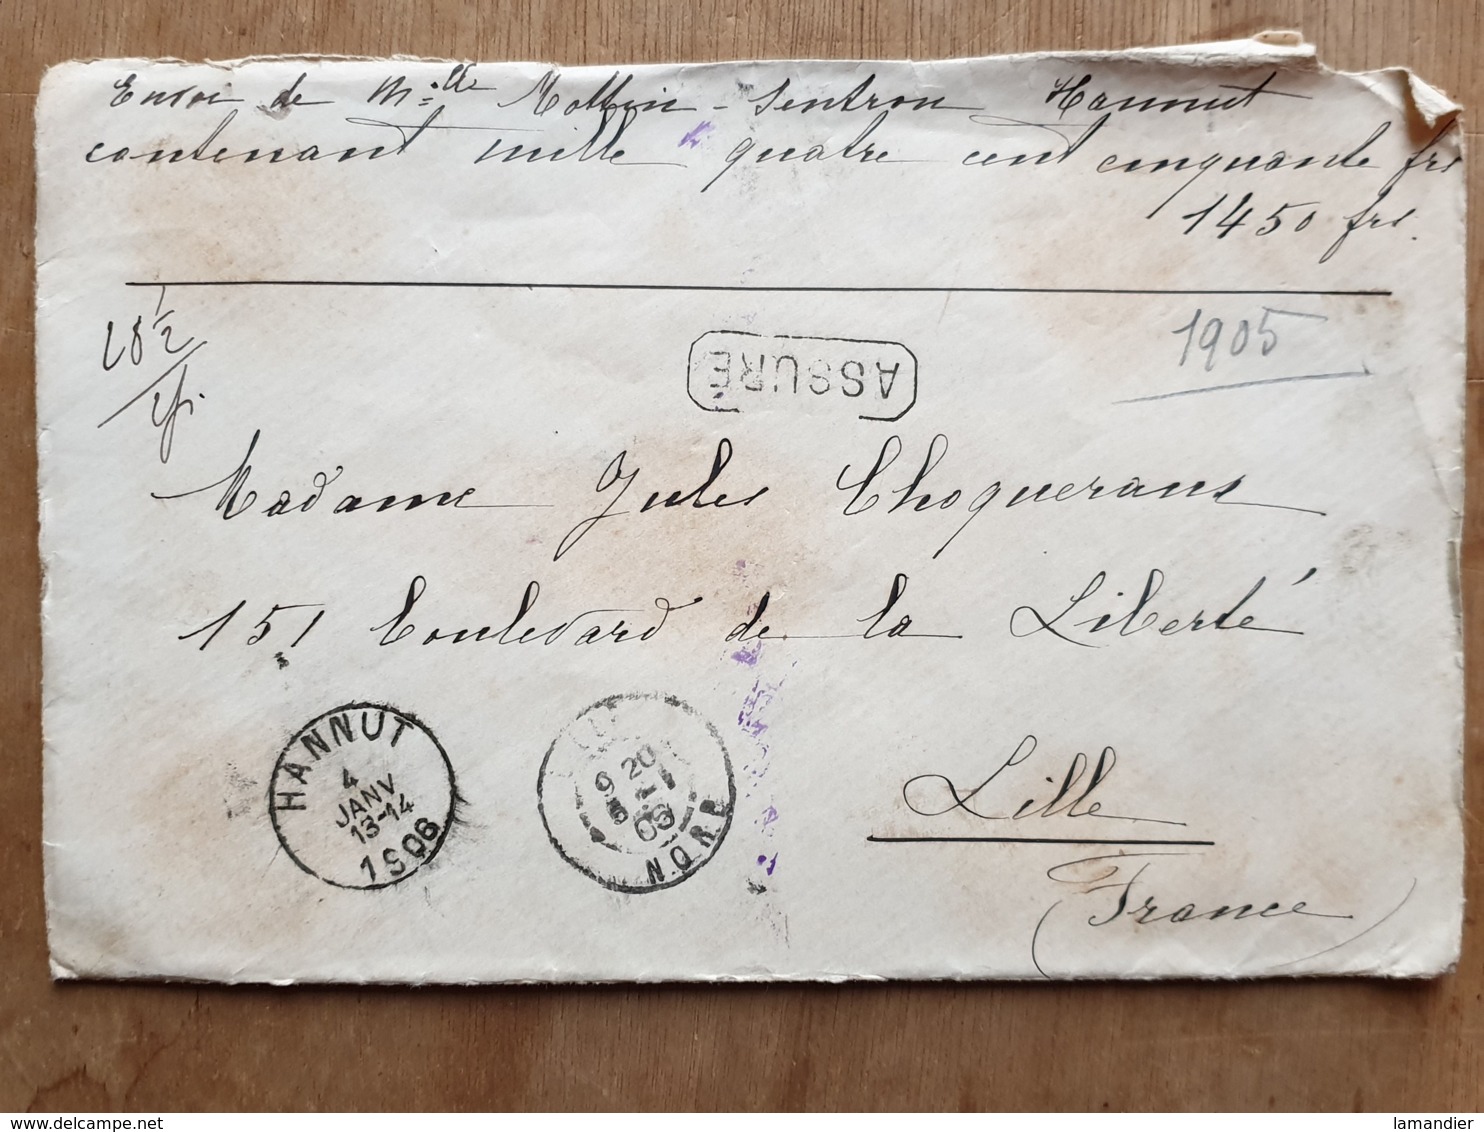 Envoi de M.lle Mottin-Sentron Hannut
contenant mille quatre cent cinquante frs
1450 frs.
28 1/2
1905
ASSURÉ
Madame Jules Choquerans
151 boulevard de la Liberté
HANNUT
4
JANV
13-14
1906
9 20
5 -1
NORD
Lille
(France)
lamandier
www.delcampe.net